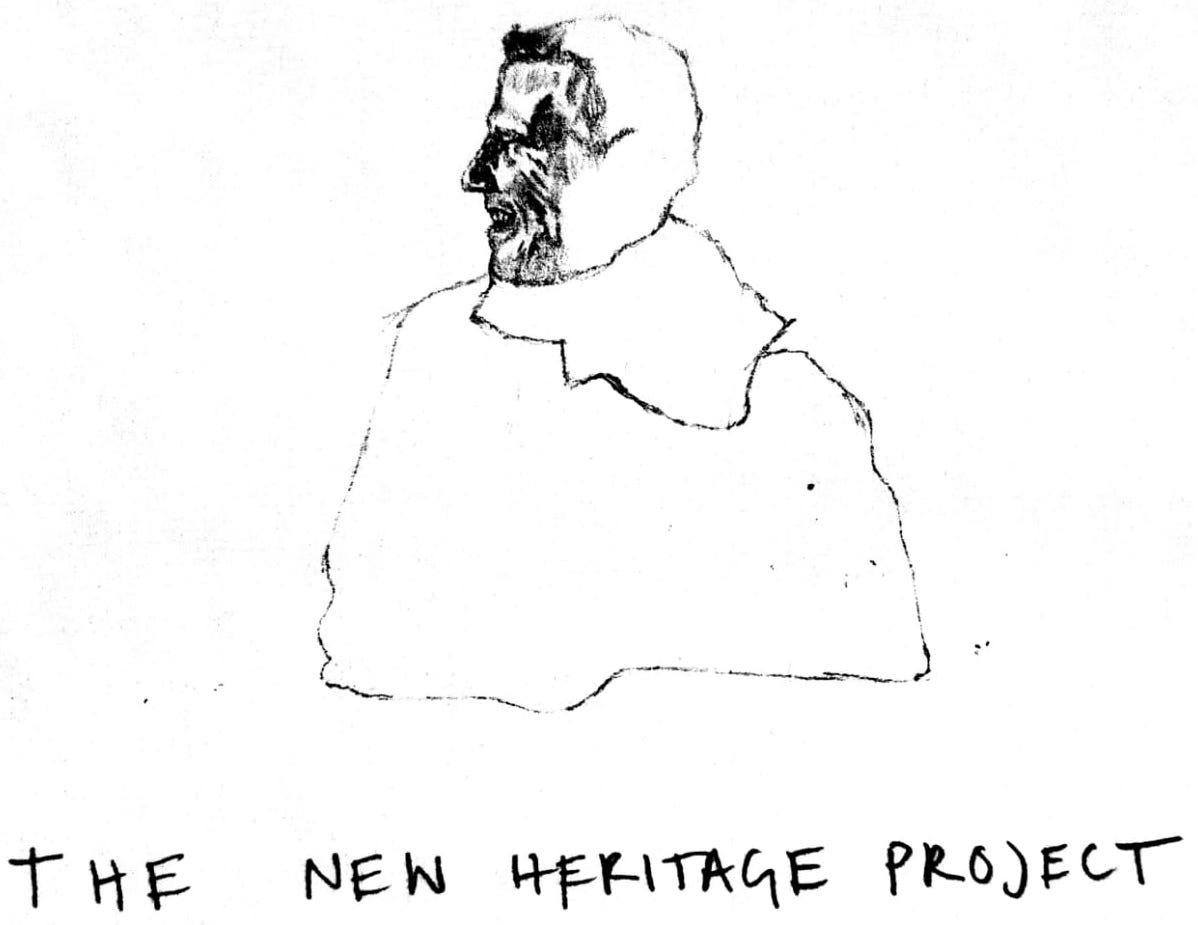 THE NEW HERITAGE PROJECT